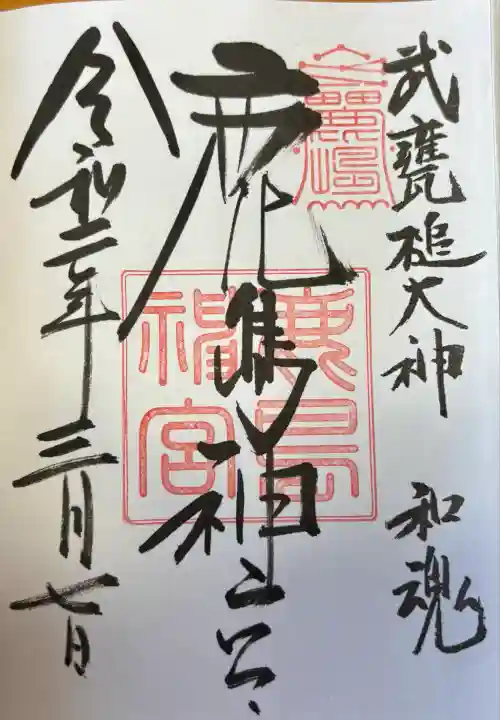 武甕槌大神　和魂
鹿島神宮
令和二年三月七日
鹿嶋
鹿島
神宮